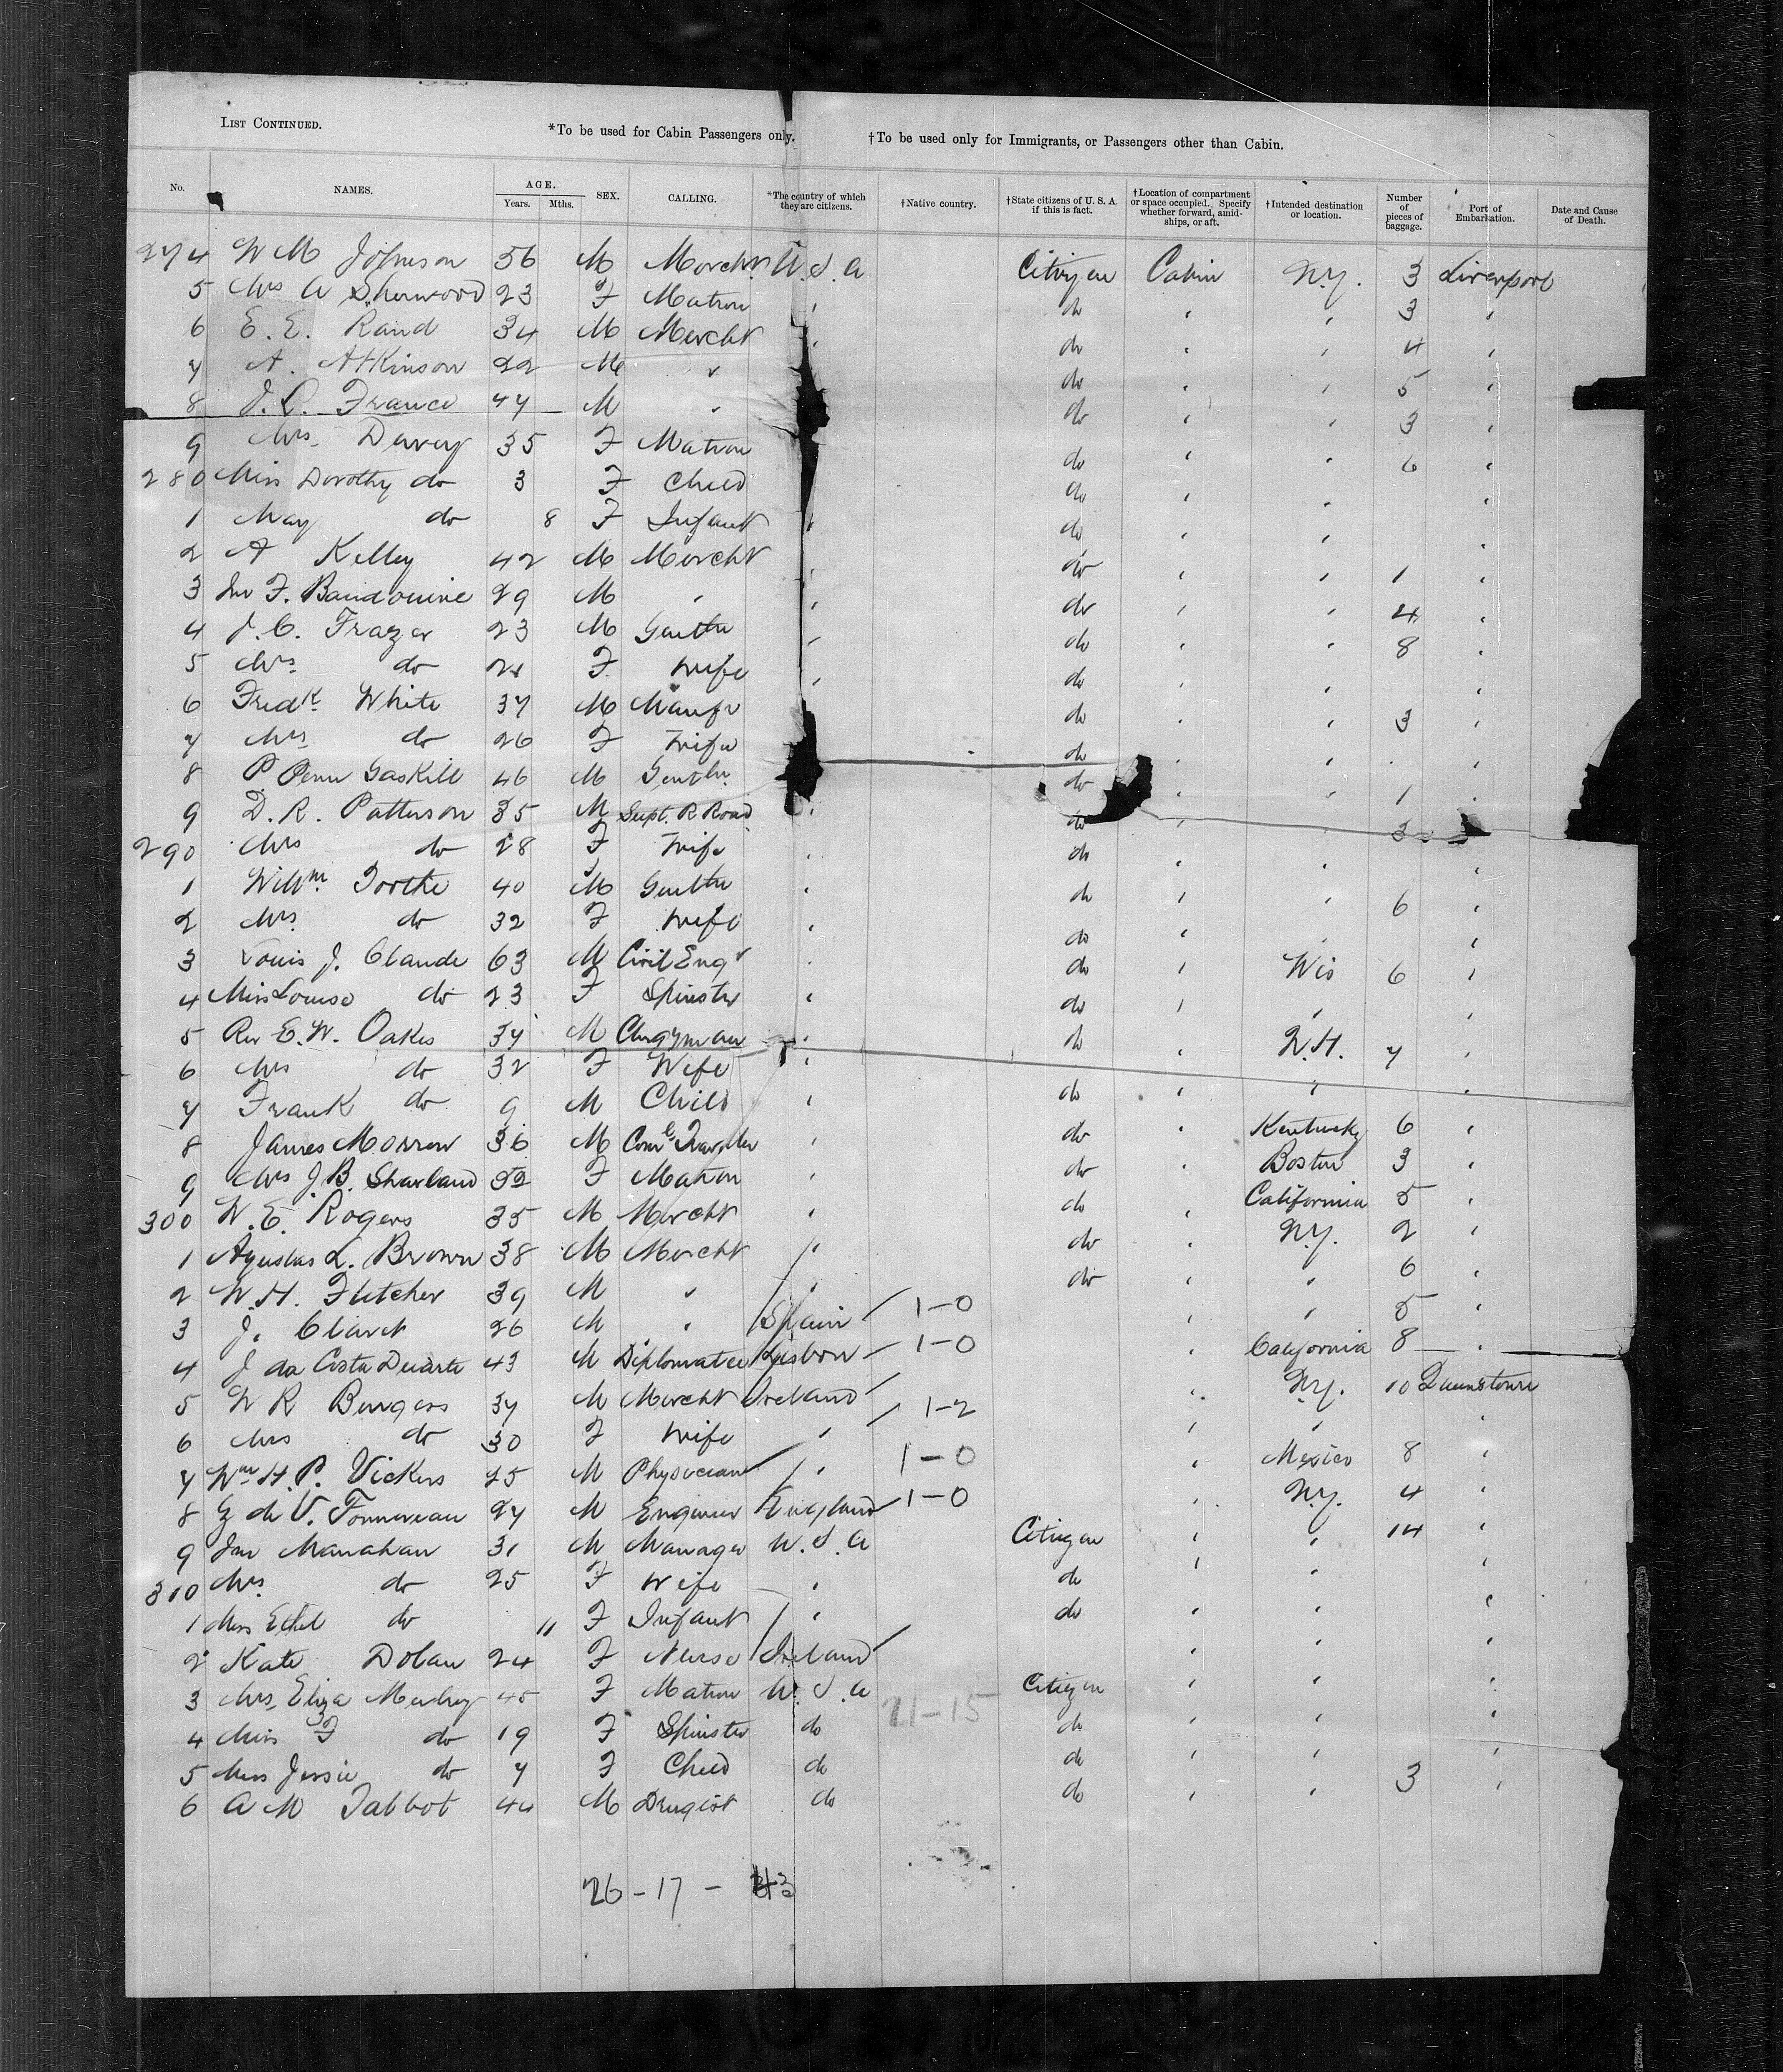 LIST CONTINUED. *To be used for Cabin Passengers only. †To be used only for Immigrants, or Passengers other than Cabin.
No. NAMES. AGE. Years. Mths. SEX. CALLING. *The country of which they are citizens. †Native country. †State citizens of U. S. A. if this is fact. †Location of compartment or space occupied. Specify whether forward, amidships, or aft. †Intended destination or location. Number of pieces of baggage. Port of Embarkation. Date and Cause of Death.
274 W M Johnson 56 M Mercht U.S.A Citizen Cabin N.Y. 3 Liverpool
5 Mrs A Sherwood 23 F Matron " do " " 3 "
6 E. E. Rand 34 M Mercht " do " " 4 "
7 A. Atkinson 22 M " do " " 5 "
8 J. C. France 47 M " do " " 3 "
9 Mrs Davey 35 F Matron do " " 6 "
280 Miss Dorothy do 3 F Child do " " "
1 May do 8 F Infant " do " " "
2 A Kelley 42 M Mercht " do " " 1 "
3 Jno F. Baudouine 29 M " " do " " 4 "
4 J. C. Frazer 23 M Gentln " do " " 8 "
5 Mrs do 21 F Wife " do " " "
6 Fredk White 37 M Manfr do " " 3 "
7 Mrs do 26 F Wife do " " "
8 P Penn Gaskill 46 M Gentln do " " 1 "
9 D. R. Patterson 35 M Supt. R Road " do " " 3
290 Mrs do 28 F Wife " do " " "
1 Willm 40 M Gentln " do " " 6 "
2 Mrs do 32 F Wife " do " " "
3 Louis J. Claude 63 M Civil Engr " do " Wis 6 "
4 Miss Louise do 23 F Spinster " do " " "
5 Rev E. W. Oakes 37 M Clergyman " do " N.H. 7 "
6 Mrs do 32 F Wife " " "
7 Frank do 9 M Child " do
8 James Morrow 36 M Coml Traveller " do " Kentucky 6 "
9 Mrs J. B. Sharland 52 F Matron " do " Boston 3 "
300 W. E. Rogers 35 M Mercht " do " California 5 "
1 Agustus L. Brown 38 M Mercht " do " N.Y. 2 "
2 W. H. Fletcher 39 M " " do " " 6 "
3 J. Claret 26 M " Spain 1-0 " " 5 "
4 J da Costa Duarte 43 M Diplomatee Lisbon 1-0 " California 8 "
5 W R Burgess 37 M Mercht Ireland " N.Y. 10 Queenstown
6 Mrs do 30 F Wife " 1-2 " " "
7 Wm H. P. Vickers 25 M Physician " 1-0 Mexico 8 "
8 G de V. Fonnereau 27 M Engineer England 1-0 " N.Y. 4 "
9 Jno Manahan 31 M Manager U.S.A Citizen " " 14 "
310 Mrs do 25 F Wife " do " " "
1 Miss Ethel do 11 F Infant " do " " "
2 Kate Dolan 24 F Nurse Ireland " " "
3 Mrs Eliza 45 F Matron U.S.A Citizen " " "
21-15
4 Miss F do 19 F Spinster do do " " "
5 Miss Jessie do 7 F Child do do " " "
6 A M Talbot 44 M Drugist do do " " 3 "
26-17- 43